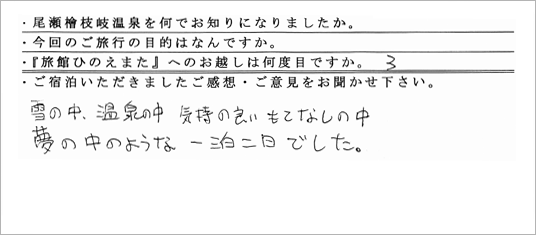 ・尾瀬檜枝岐温泉を何でお知りになりましたか。
・今回のご旅行の目的はなんですか。
・『旅館ひのえまた』へのお越しは何度目ですか。 3
・ご宿泊いただきましたご感想・ご意見をお聞かせ下さい。
雪の中、温泉の中 気持の良いもてなしの中
夢の中のような 一泊二日でした。